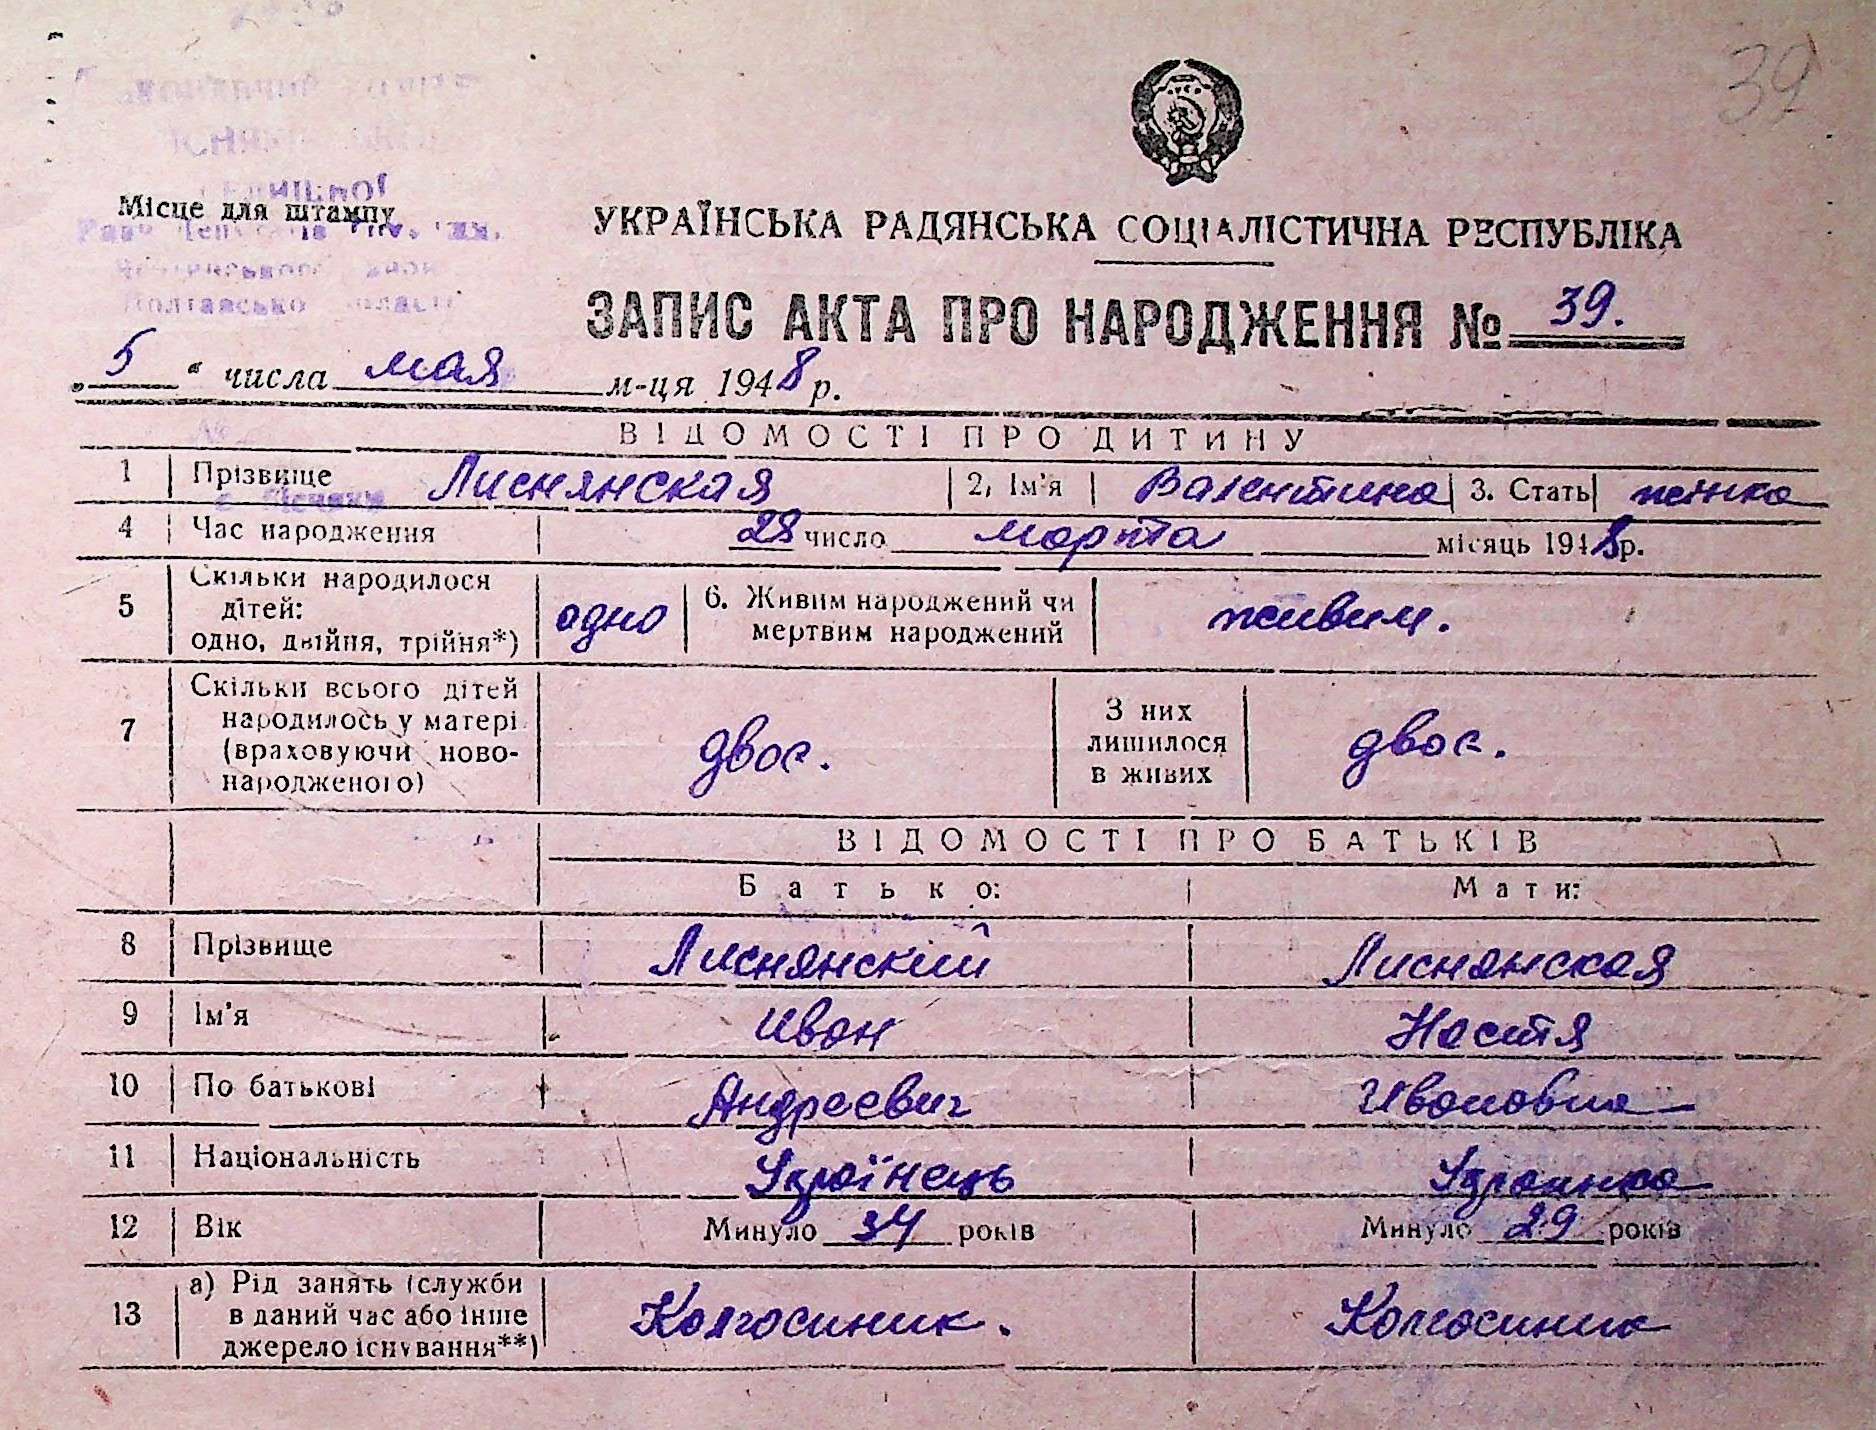 39
Місце для штампу
УКРАЇНСЬКА РАДЯНСЬКА СОЦІАЛІСТИЧНА РЕСПУБЛІКА
ЗАПИС АКТА ПРО НАРОДЖЕННЯ № 39.
„5“ числа мая м-ця 1948 р.
ВІДОМОСТІ ПРО ДИТИНУ
1 Прізвище Лиснянская 2. Ім'я Валентина 3. Стать жінка
4 Час народження 28 число марта місяць 1948 р.
5 Скільки народилося дітей: одно, двійня, трійня*) одно 6. Живим народжений чи мертвим народжений живим.
7 Скільки всього дітей народилось у матері (враховуючи новонародженого) двоє. З них лишилося в живих двоє.
ВІДОМОСТІ ПРО БАТЬКІВ
Батько: Мати:
8 Прізвище Лиснянский Лиснянская
9 Ім'я Иван Настя
10 По батькові Андреевич Ивановна
11 Національність Українець Украинка
12 Вік Минуло 34 років Минуло 29 років
13 а) Рід занять (служби в даний час або інше джерело існування**) Колгоспник. Колгоспник